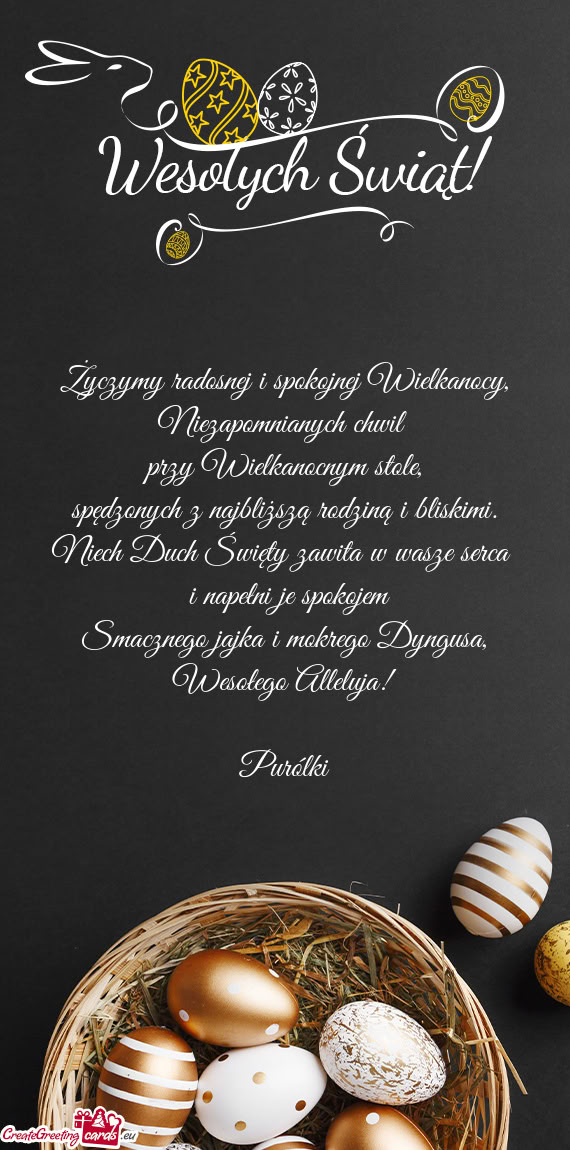 Wesołych Świąt!
Życzymy radosnej i spokojnej Wielkanocy,
Niezapomnianych chwil
przy Wielkanocnym stole,
spędzonych z najbliższą rodziną i bliskimi.
Niech Duch Święty zawita w wasze serca
i napełni je spokojem
Smacznego jajka i mokrego Dyngusa,
Wesołego Alleluja!
Purólki
CreateGreeting cards .eu